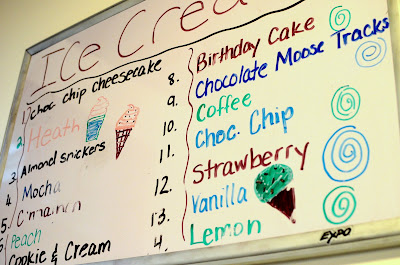 ICE Crea
1. choc chip cheesecake
2. Heath
3. Almond snickers
4. Mocha
5. Cinnamon
Peach
Cookie & Cream
8. Birthday Cake
9. Chocolate Moose Tracks
10. Coffee
11. Choc. Chip
12. Strawberry
13. Vanilla
4. Lemon
EXPO